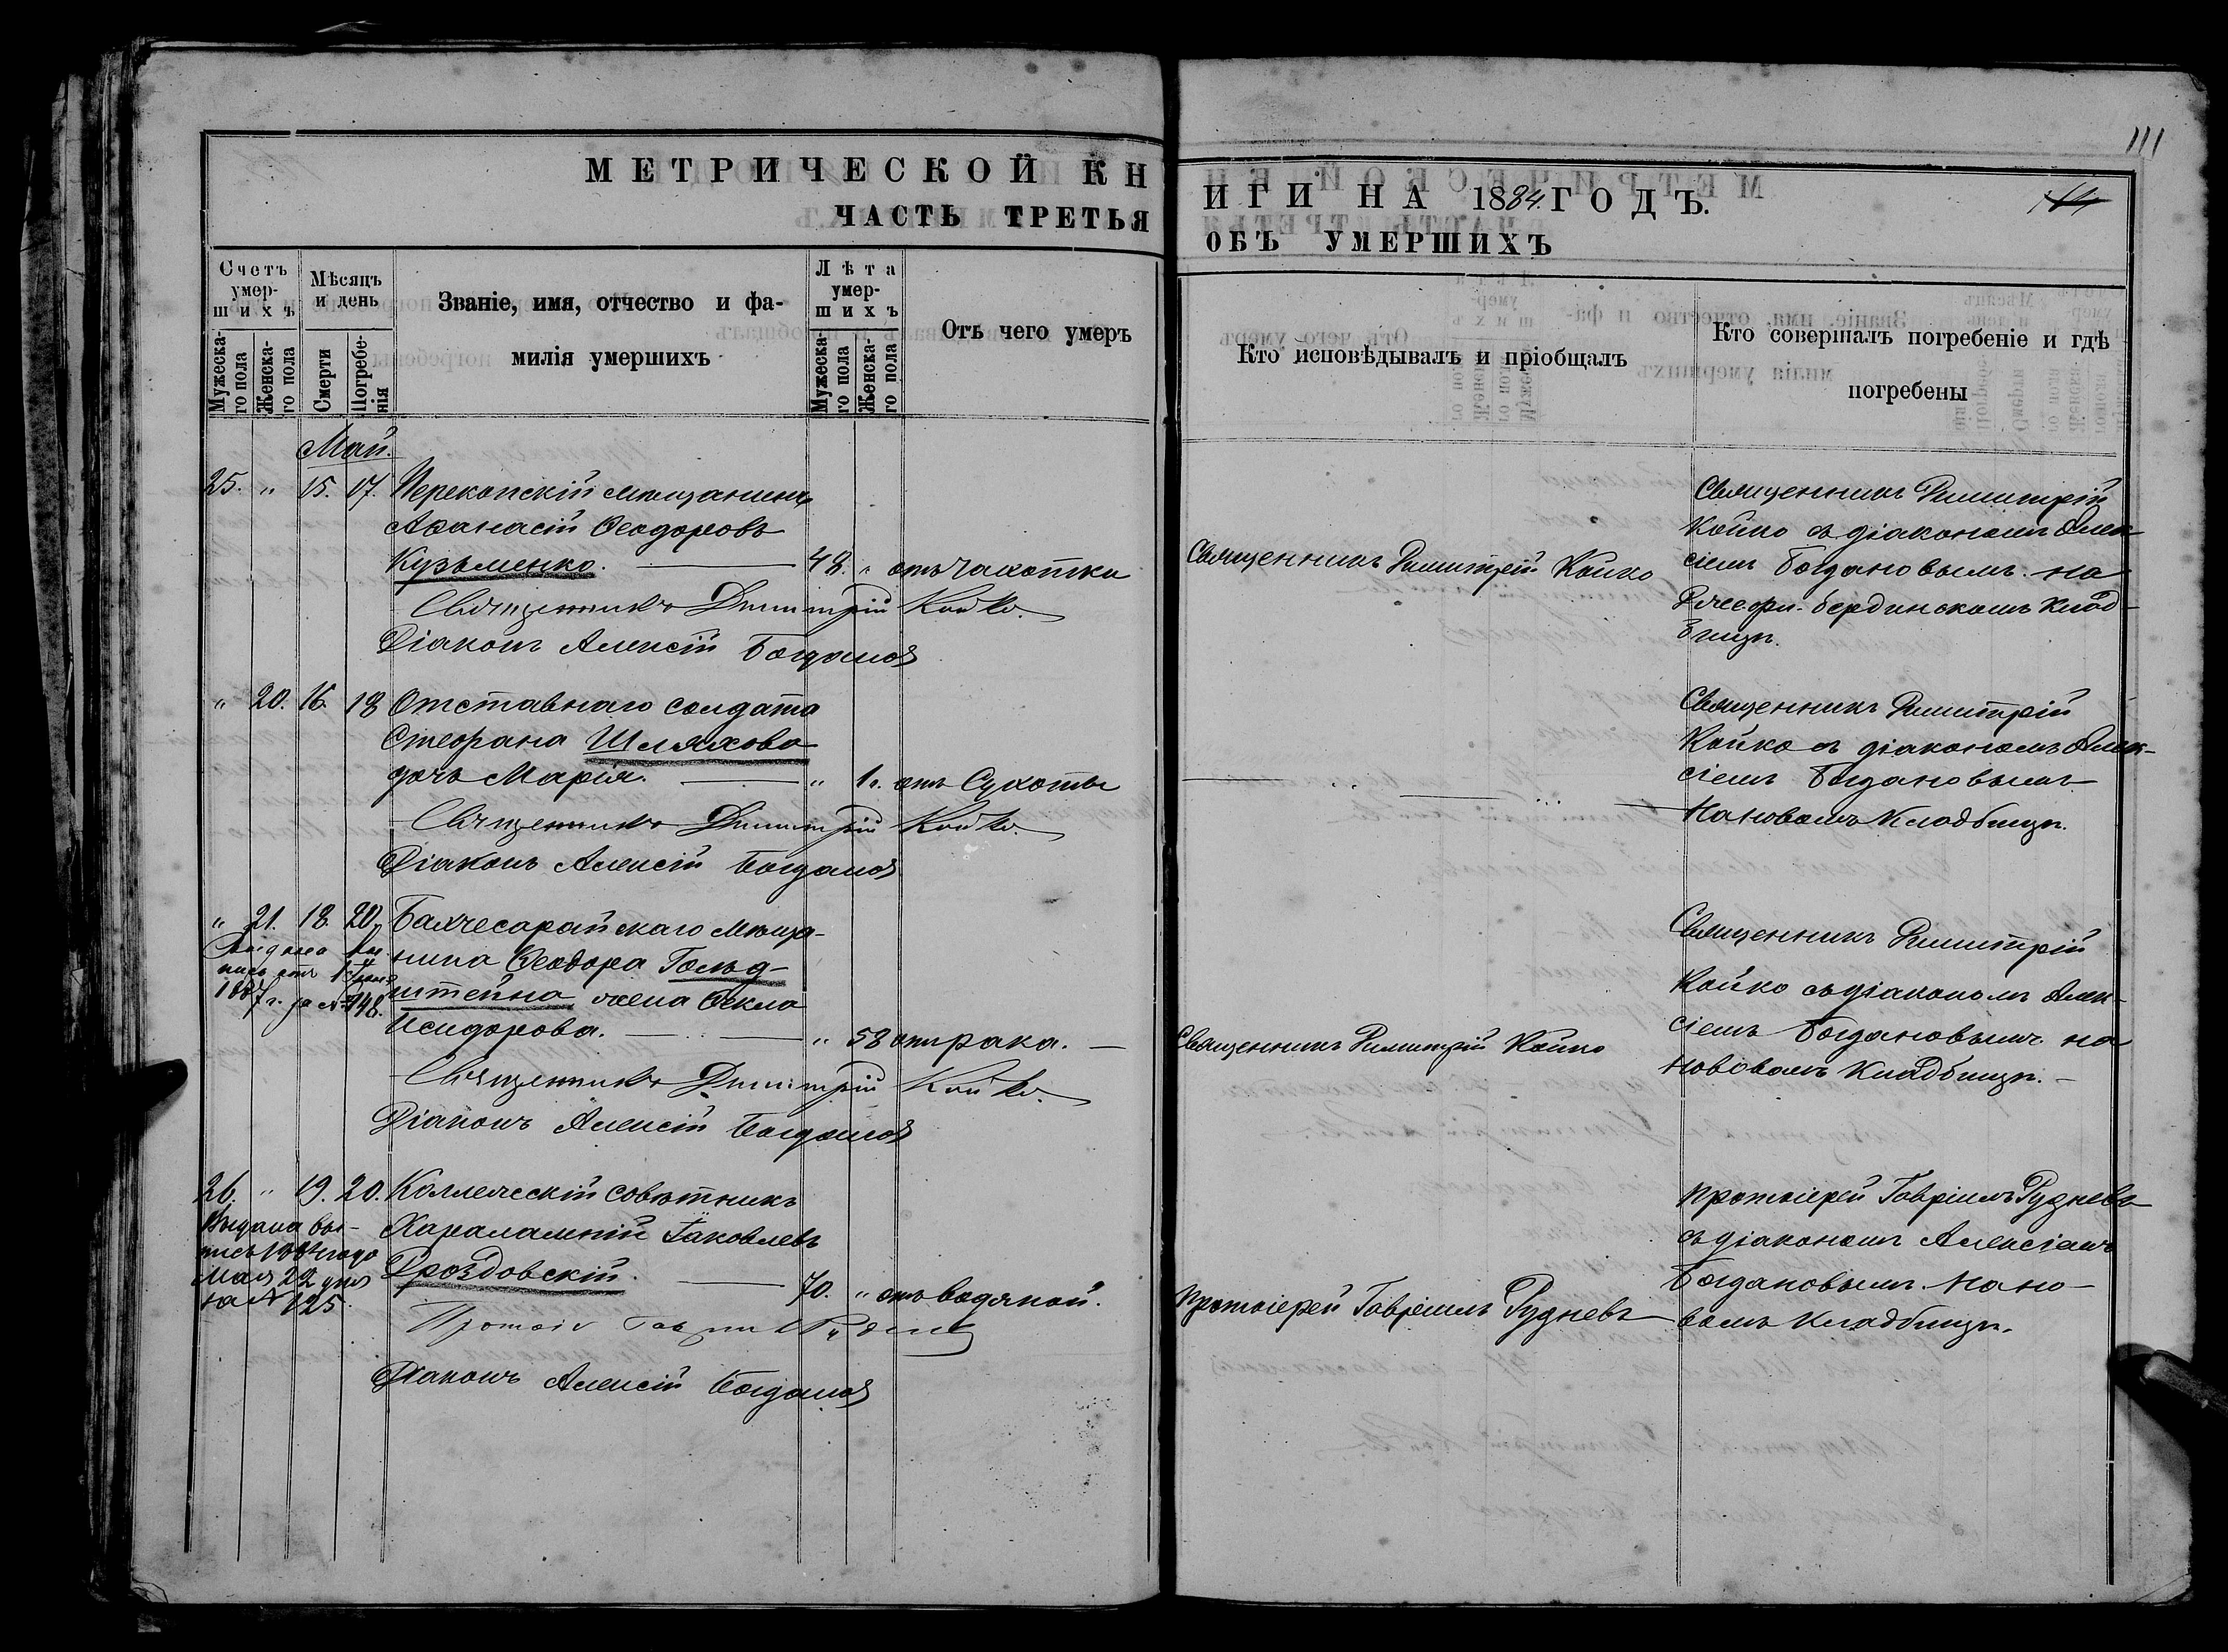 111
МЕТРИЧЕСКОЙ КНИГИ НА 1884. ГОДЪ.
ЧАСТЬ ТРЕТЬЯ ОБЪ УМЕРШИХЪ
Счетъ умер-
шихъ
Мѣсяцъ
и день
Званіе, имя, отчество и фа-
милія умершихъ
Лѣта
умер-
шихъ
Отъ чего умеръ
Кто исповѣдывалъ и пріобщалъ
Кто совершалъ погребеніе и гдѣ
погребены
Мужеска-
го пола
Женска-
го пола
Смерти
Погребе-
нія
Мужеска-
го пола
Женска-
го пола
Май.
25. " 15. 17. Перекопскій мѣщанинъ
Аѳанасій Ѳеодоровъ
Кузьменко. 48. " отъ чахотки
Священникъ Димитрій Койко
Священникъ Димитрій
Койко съ діакономъ Алек-
сіемъ Богдановымъ. на
кладб-
бищѣ.
Священникъ Димитрій Койко.
Діаконъ Алексій Богданов
" 20. 16. 18 Отставнаго солдата
Стефана Шляхова
дочь Марія. " 1г. отъ Сухоты
Священникъ Димитрій
Койко съ діакономъ Алек-
сіемъ Богдановымъ
На новомъ Кладбищѣ.
Священникъ Димитрій Койко.
Діаконъ Алексій Богданов
" 21. 18. 20. Бахчесарайскаго мѣща-
нина Ѳеодора Гольд-
штейна жена Ѳекла
Исидорова. " 58 отъ рака.
Священникъ Димитрій Койко
Священникъ Димитрій
Койко съ діакономъ Алек-
сіемъ Богдановымъ. на
новомъ Кладбищѣ.
за № 148.
Священникъ Димитрій Койко.
Діаконъ Алексій Богданов
26. " 19. 20. Коллежскій совѣтникъ
Харалампій Яковлевъ
Дроздовскій. 70. " отъ водяной.
Протоіерей Гавріилъ Рудневъ
Протоіерей Гавріилъ Рудневъ
съ діакономъ Алексіемъ
Богдановымъ. На но-
вомъ Кладбищѣ.
Выдана вы-
пись 1884 года
Мая 22 дня
за № 125.
Діаконъ Алексій Богданов